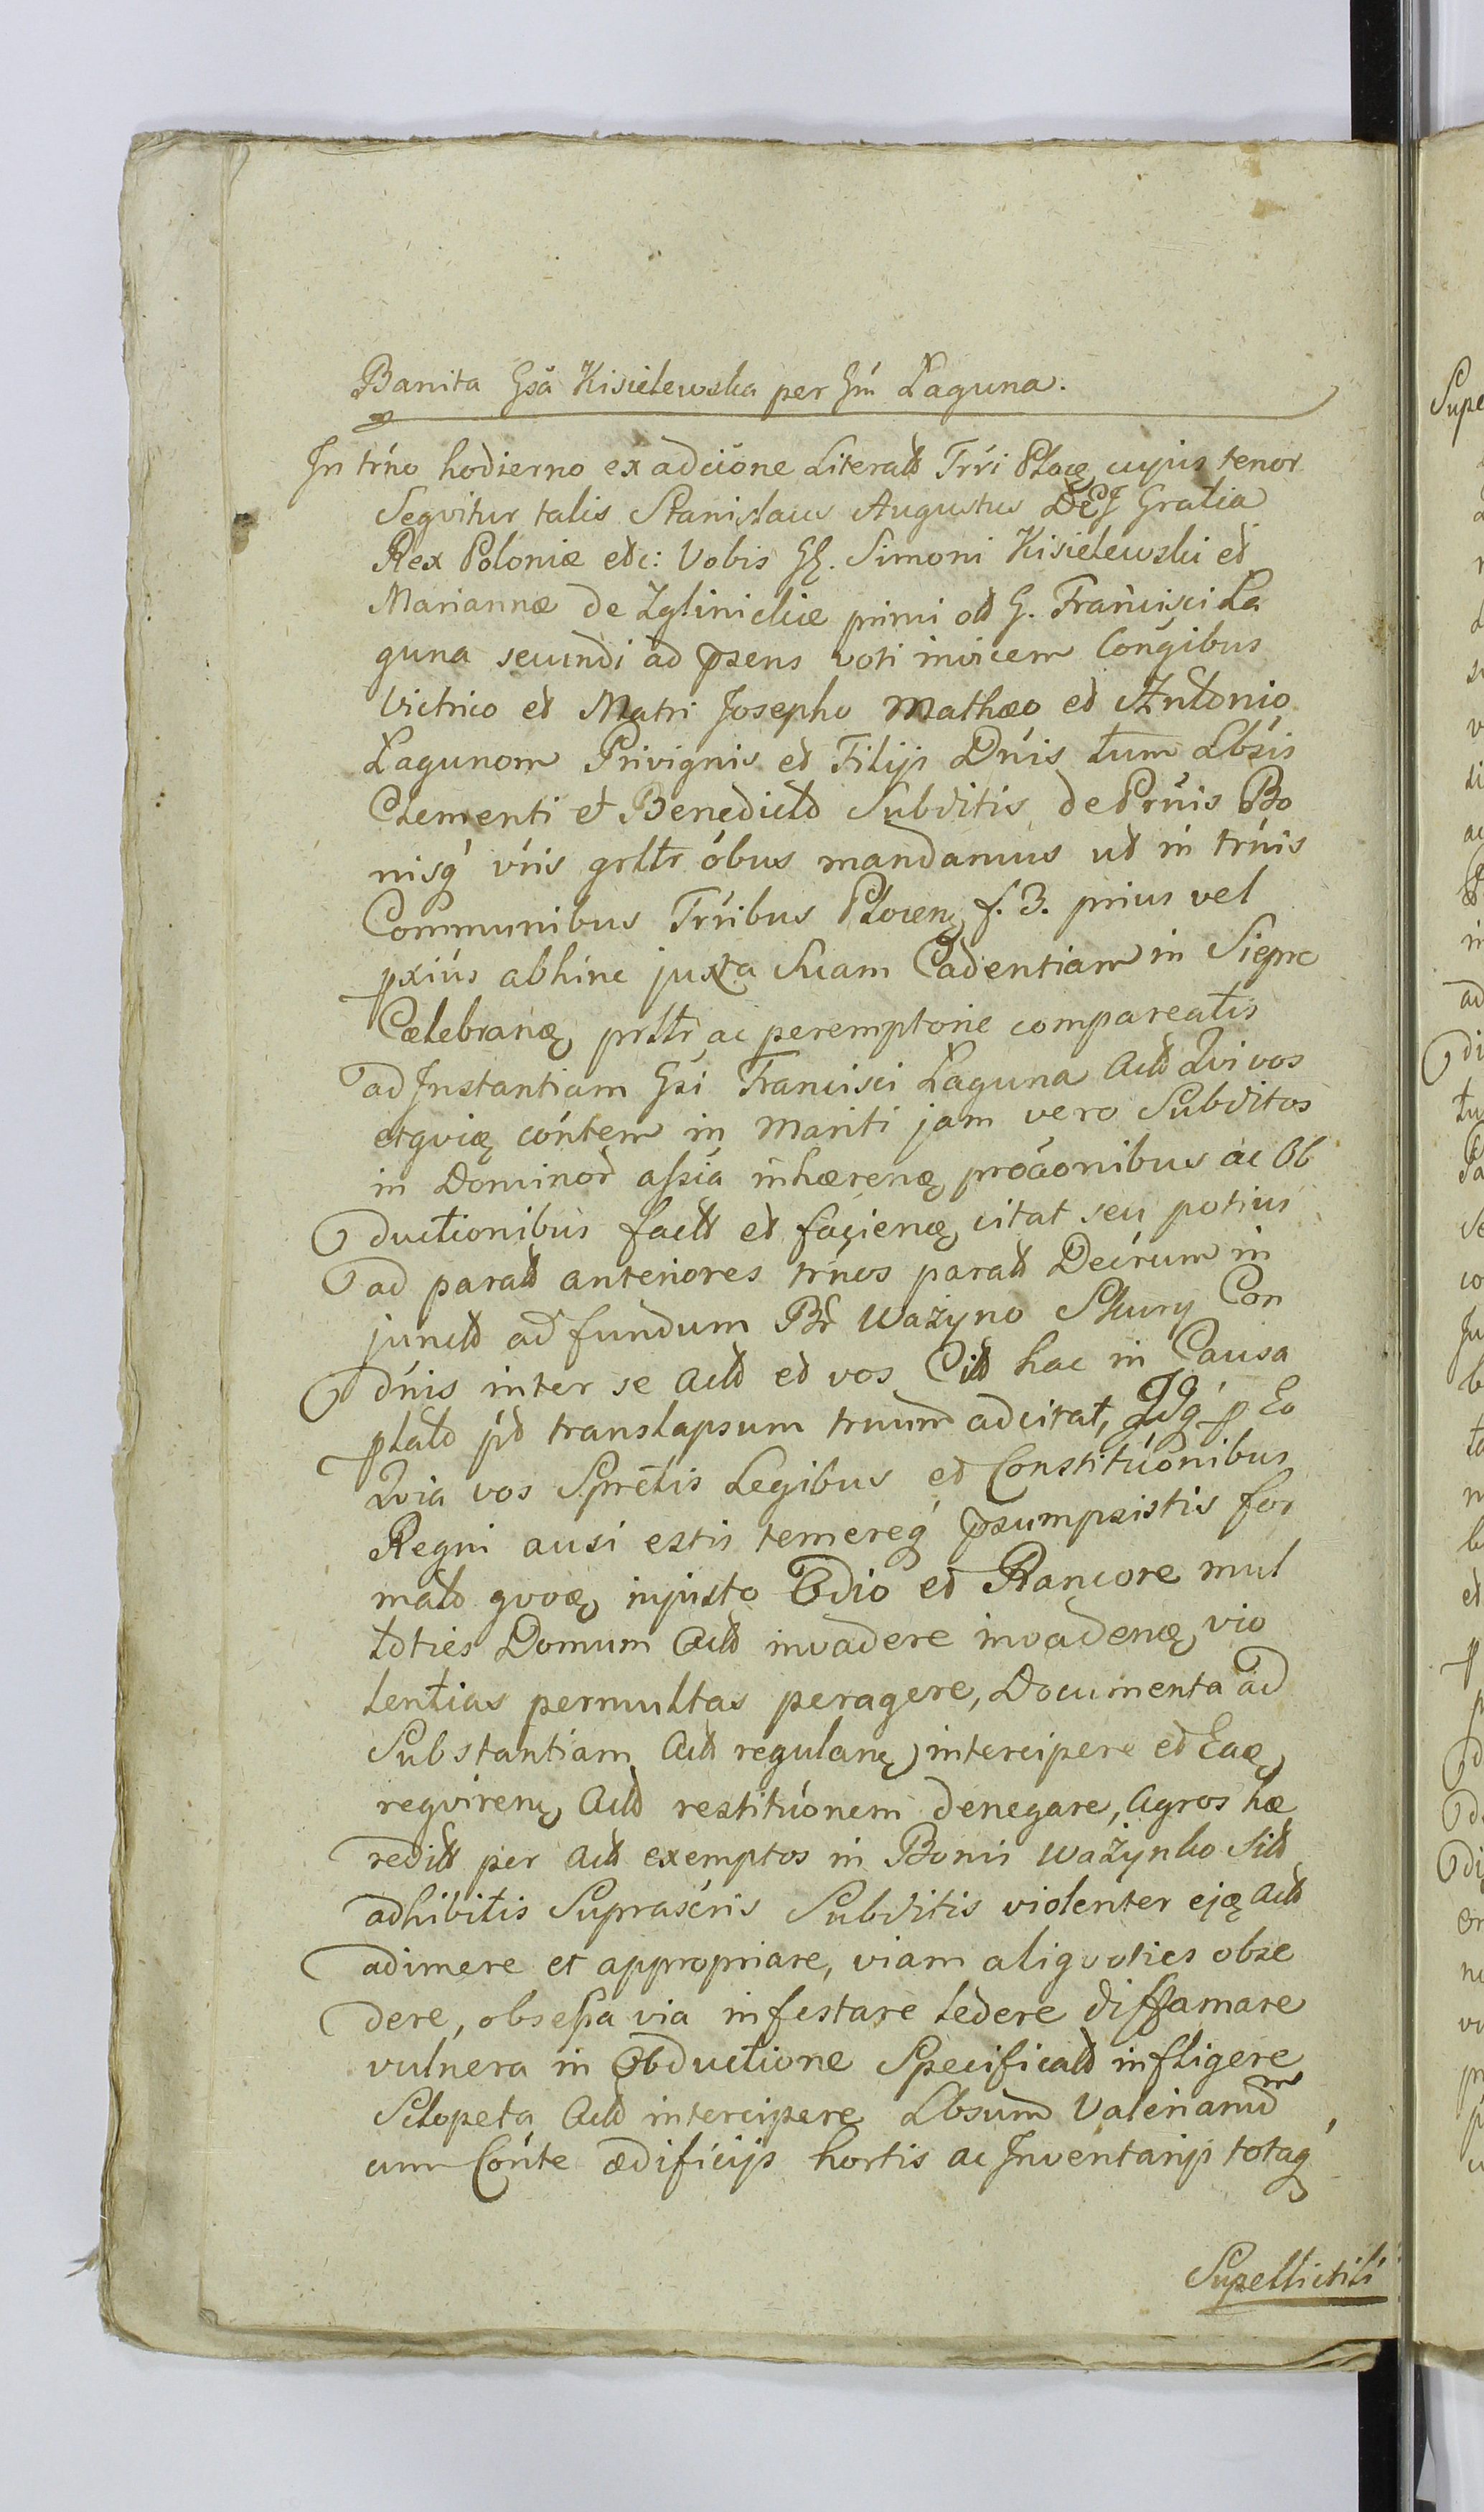 Banita Gsa Kisielewska per Gm Laguna.
In trńo hodierno ex adcióne Literatt Trri Płoceę cujus tenor
Seqvitur talis Stanislaus Augustus DEJ Gratia
Rex Poloniæ etc: Vobis GG. Simoni Kisielewski et
Mariannæ de Zglinickie primi ott G. Francisci La
guna secundi ad psens voti invicem Congibus
Victrico et Matri Josepho Mathæo et Antonio
Lagunom Privignis et Filijs Dńis tum Lbsis
Clementi et Benedicto Subditis de Prńis Bo
nisq́ vńis grlłr óbus mandamus ut in trńis
Communibus Trribus Płoceń f. 3. prius vel
pxius abhinc juxta Suam Cadentiam in Sieprc
Cælebranę prłłr ac peremptorie compareatis
ad Instantiam Gsi Francisci Laguna Actt Qvi vos
etqvię cóntem in Mariti jam vero Subditos
in Dominor assia inhærenę próconibus ac Ob
ductionibus factt et facienę citat seu potius
ad paratt anteriores trńos paratt Decrum in
junctt ad fundum Br Ważyno Skury Con
dńis inter se Actt et vos Citt hac in Causa
platt pt translapsum trnum adcitat, Idq́ p Eo
Qvia vos Spretis Legibus et Constituónibus
Regni ausi estis temereq́ psumpsistis for
mato qvoę injusto Odio et Rancore mul
toties Domum Actt invadere invadenę vio
lentias permultas peragere, Documenta ad
Substantiam Actt regulanę intercipere et Eaę
reqvirenę Actt restituónem denegare, Agros hæ
reditt per Actt exemptos in Bonis Ważynko Sitt
adhibitis Suprascris Subditis violenter ejq Actt
adimere et appropriare, viam aliqvoties obse
dere, obsessa via infestare ledere diffamare
vulnera in Obductione Specificatt infligere
Sclopeta Actt intercipere Lbsum Valerianum
cum Cónte ædificijs hortis ac Inventarijs totaq́
Supellictili